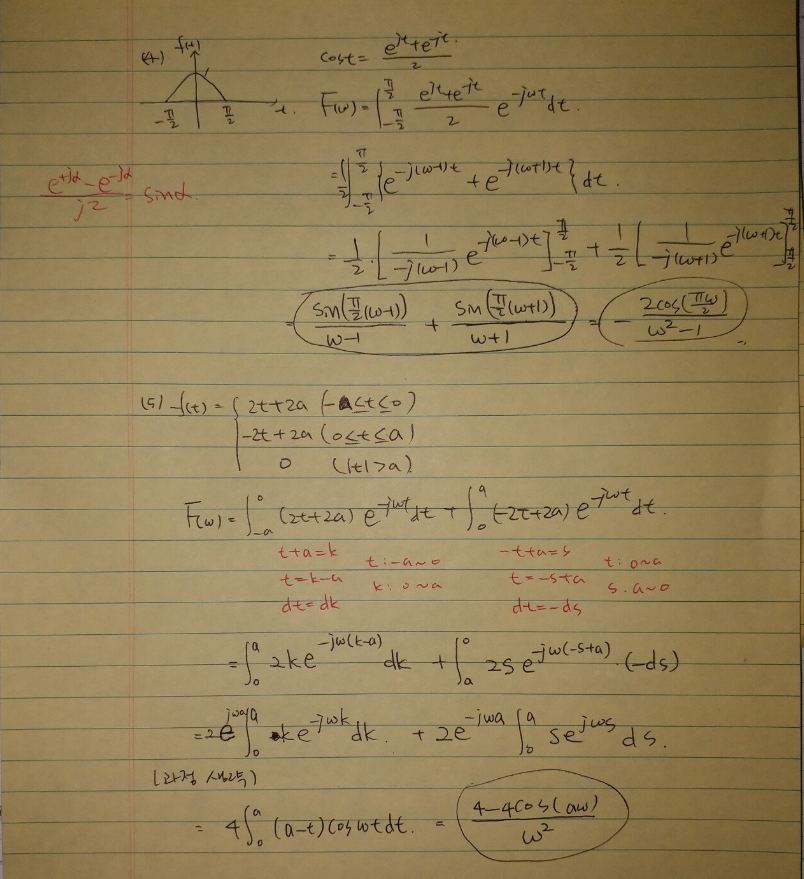 (4) f(t) cost = (e^{jt}+e^{jt})/2
1
-π/2 π/2 t. F(ω) = ∫_{-π/2}^{π/2} (e^{jt}+e^{-jt})/2 e^{-jωt} dt.
= 1/2 ∫_{-π/2}^{π/2} {e^{-j(ω-1)t} + e^{-j(ω+1)t}} dt.
(e^{+jα} - e^{-jα})/j2 = sinα.
= 1/2 · [1/(-j(ω-1)) e^{-j(ω-1)t}]_{-π/2}^{π/2} + 1/2 [1/(-j(ω+1)) e^{-j(ω+1)t}]_{-π/2}^{π/2}
= sin(π/2(ω-1))/(ω-1) + sin(π/2(ω+1))/(ω+1) = - 2cos(πω/2)/(ω²-1)
(5) f(t) = { 2t+2a (-a≤t≤0)
-2t+2a (0≤t≤a)
0 (|t|>a)
F(ω) = ∫_{-a}^{0} (2t+2a) e^{-jωt} dt + ∫_{0}^{a} (-2t+2a) e^{-jωt} dt.
t+a=k -t+a=s
t=k-a t: -a~0 t=-s+a t: 0~a
dt=dk k: 0~a dt=-ds s. a~0
= ∫_{0}^{a} 2k e^{-jω(k-a)} dk + ∫_{a}^{0} 2s e^{-jω(-s+a)} · (-ds)
= 2e^{jωa} ∫_{0}^{a} k e^{-jωk} dk. + 2e^{-jωa} ∫_{0}^{a} s e^{jωs} ds.
(과정 생략)
= 4∫_{0}^{a} (a-t) cos ωt dt. = (4-4cos(aω))/ω²